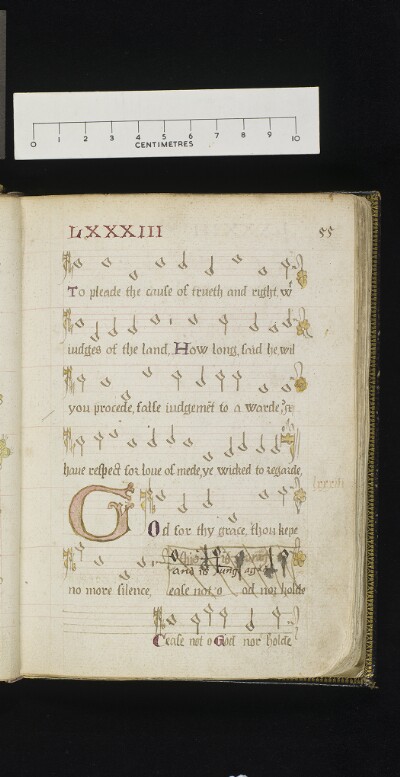 0 1 2 3 4 5 6 7 8 9 10
CENTIMETRES
LXXXIII 55
To pleade the cause of trueth and right, wt
iudges of the land, How long, said he, wil
you procede, false iudgemēt to a warde,
haue respect for loue of mede, ye wicked to regarde,
God for thy grace, thou kepe
and is sung
no more silence, cease not, o od nor holde
Cease not o God nor holde